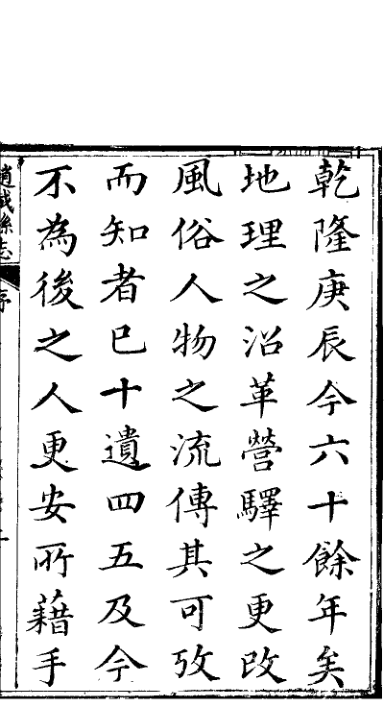 乾隆庚辰今六十餘年矣
地理之沿革營驛之更改
風俗人物之流傳其可攷
而知者已十遺四五及今
不為後之人更安所藉手
趙城縣志
序